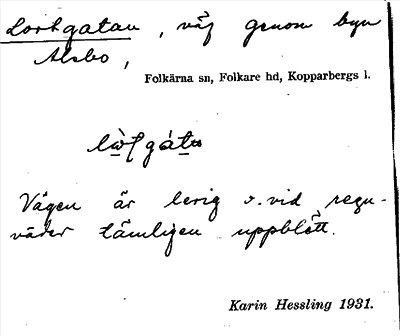 Lortgatan, väg genom byn
Alsbo,
Folkärna sn, Folkare hd, Kopparbergs l.
Vägen är lerig o. vid regn-
väder tämligen uppblött.
Karin Hessling 1931.